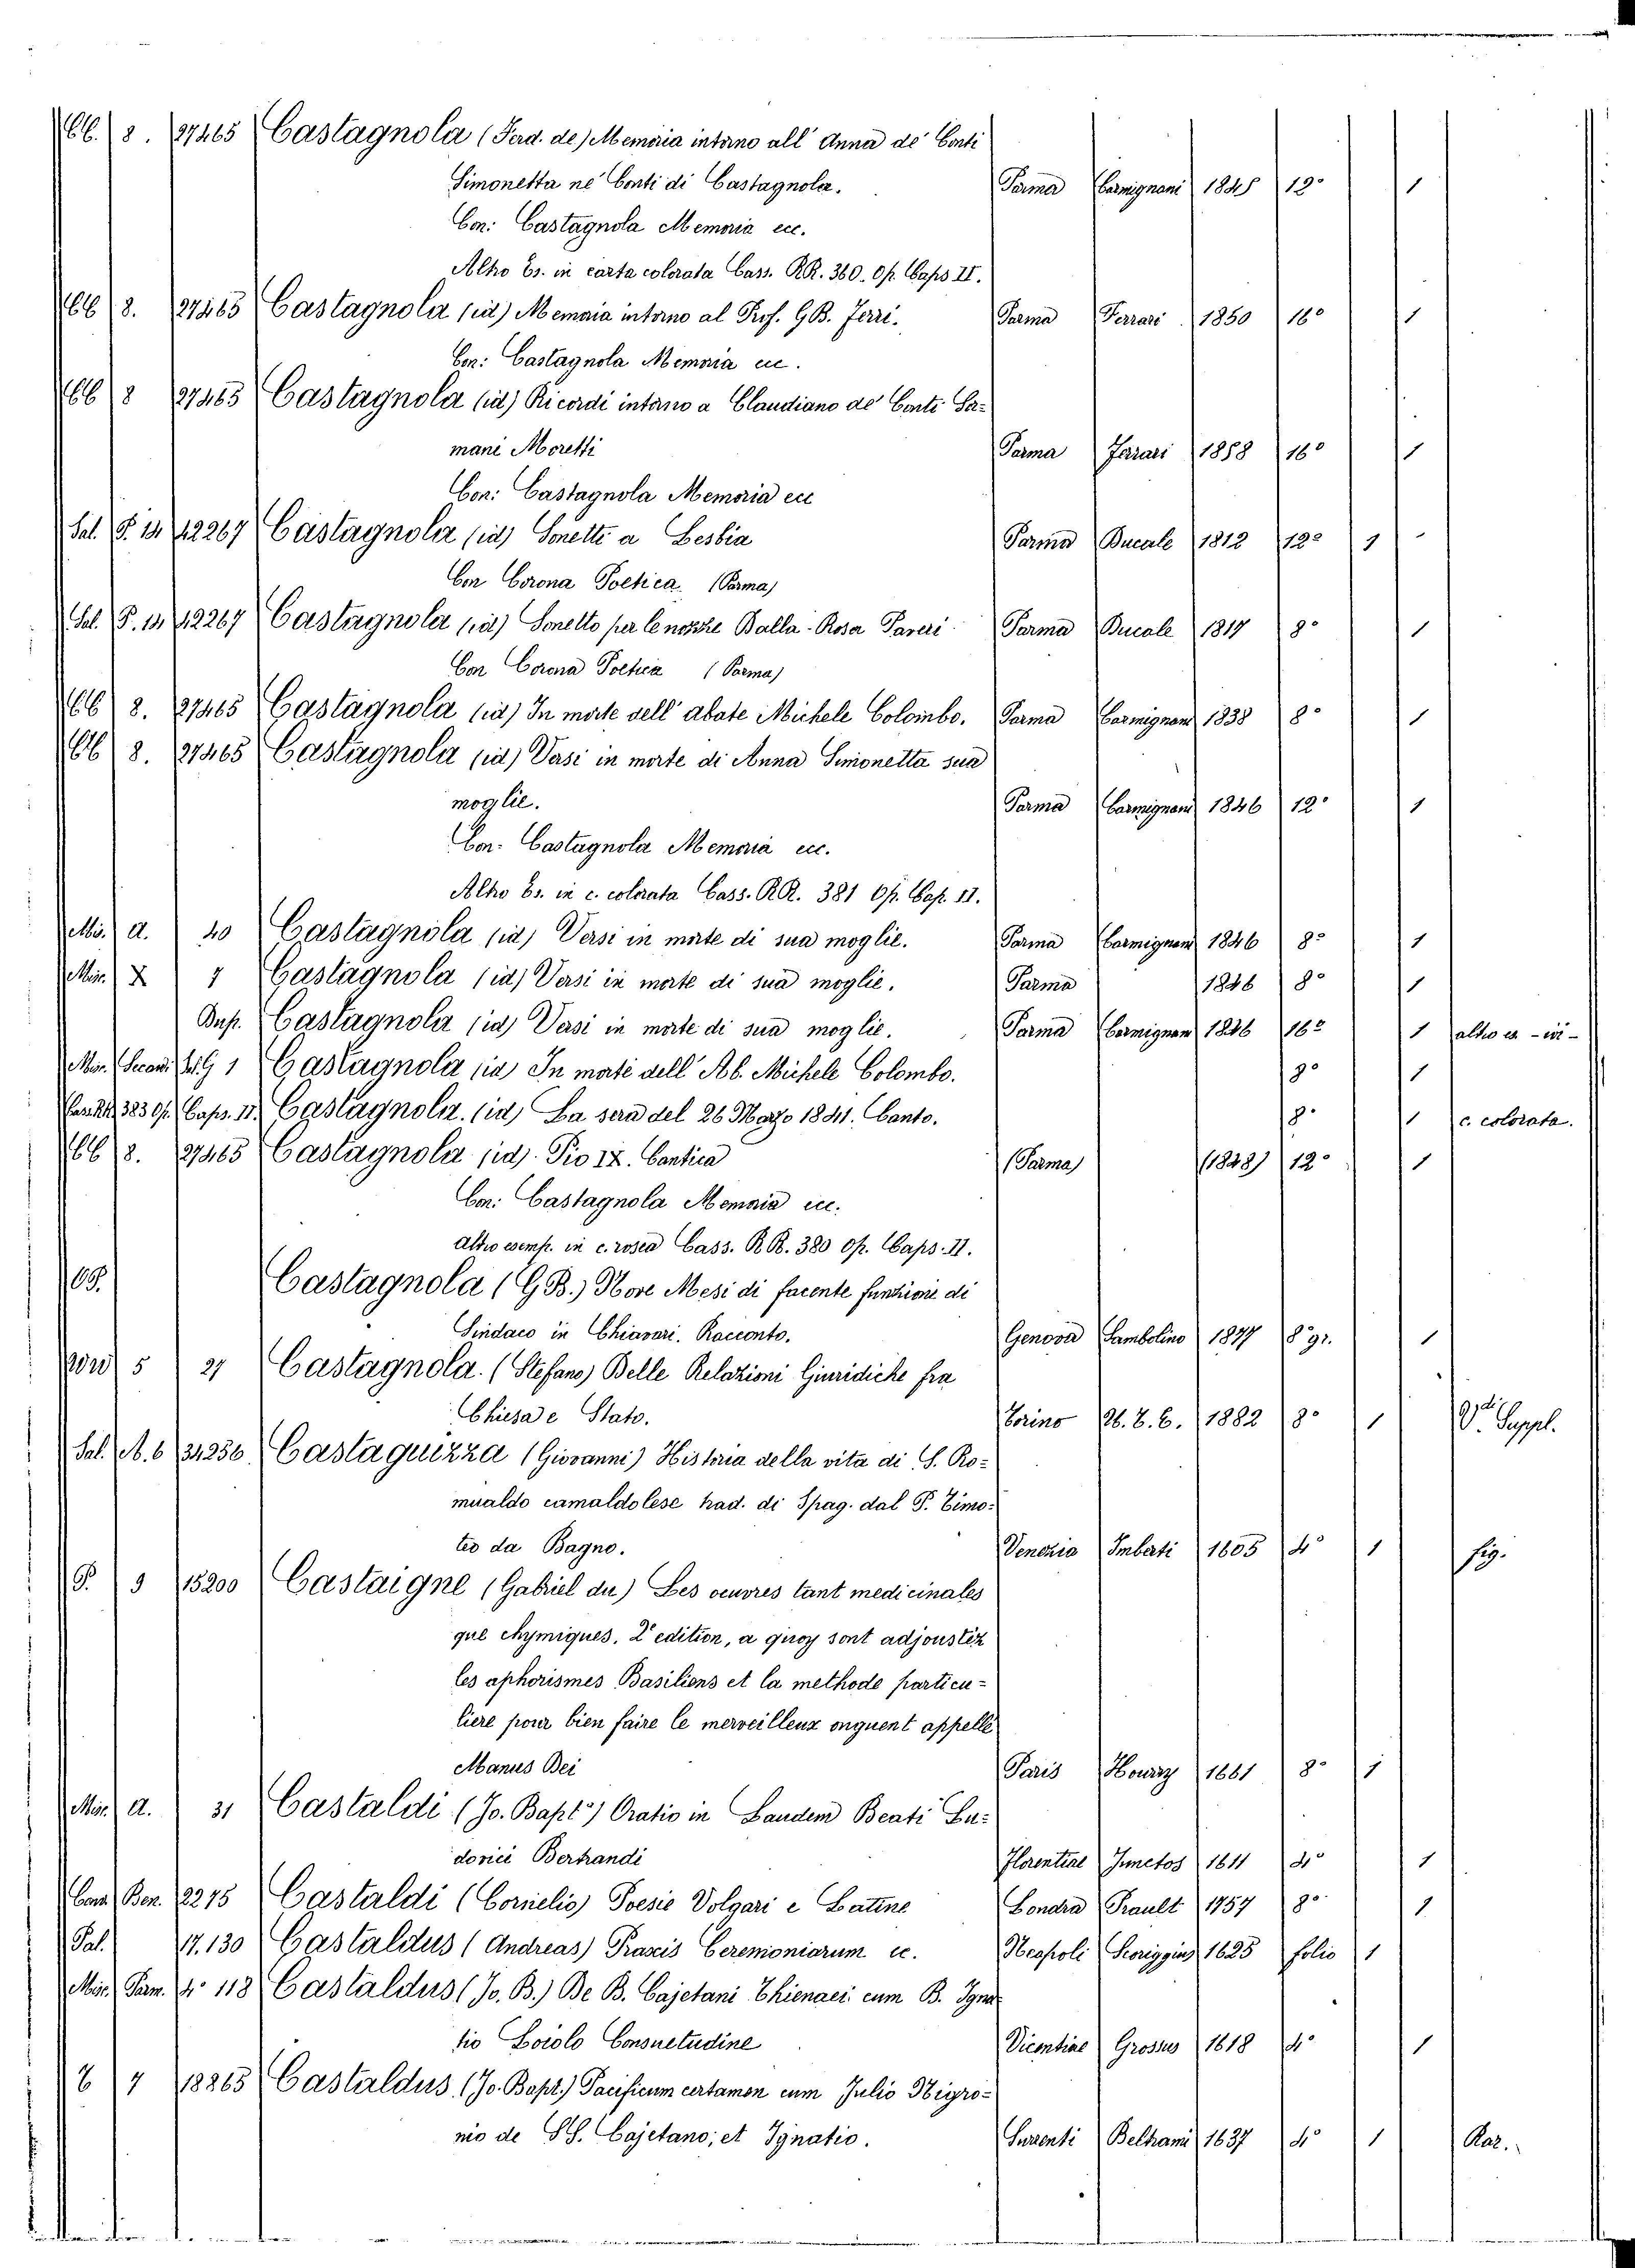 CC. 8. 27465 Castagnola (Ferd. de) Memoria intorno all' Anna de' Conti
Simonetta ne' Conti di Castagnola. Parma Carmignani 1845 12° 1
Con: Castagnola Memoria ecc.
Altro Es. in carta colorata Cass. RR. 360. Op. Caps II.
CC 8. 27465 Castagnola (id) Memoria intorno al Prof. G.B. Ferri. Parma Ferrari 1850 16° 1
Con: Castagnola Memoria ecc.
CC 8 27465 Castagnola (id) Ricordi intorno a Claudiano de' Conti Sa-
mani Moretti Parma Ferrari 1858 16° 1
Con: Castagnola Memoria ecc
Sal. P. 14 42267 Castagnola (id) Sonetti a Lesbia Parma Ducale 1812 12° 1
Con Corona Poetica (Parma)
Sal. P. 14 42267 Castagnola (id) Sonetto per le nozze Balla-Rosa Paveri Parma Ducale 1817 8° 1
Con Corona Poetica (Parma)
CC 8. 27465 Castagnola (id) In morte dell' abate Michele Colombo. Parma Carmignani 1838 8° 1
CC 8. 27465 Castagnola (id) Versi in morte di Anna Simonetta sua
moglie. Parma Carmignani 1846 12° 1
Con: Castagnola Memoria ecc.
Altro Es. in c. colorata Cass. RR. 381 Op. Cap. II.
Mis. A. 40 Castagnola (id) Versi in morte di sua moglie. Parma Carmignani 1846 8° 1
Mis. X 7 Castagnola (id) Versi in morte di sua moglie. Parma 1846 8° 1
Dup. Castagnola (id) Versi in morte di sua moglie. Parma Carmignani 1846 16° 1 altro es -
Mis. G 1 Castagnola (id) In morte dell' Ab. Michele Colombo. 8° 1
Cass. RR. 383 Op. Caps. II. Castagnola. (id) La sera del 26 Marzo 1841. Canto. 8° 1 c. colorata.
CC 8. 27465 Castagnola (id). Pio IX. Cantica (Parma) (1848) 12° 1
Con: Castagnola Memoria ecc.
Altro esemp. in c. rosea Cass. RR. 380 Op. Caps. II.
Castagnola (G.B.) Nove Mesi di facente funzioni di
Sindaco in Chiavari. Racconto. Genova Sambolino 1877 8° gr. 1
5 27 Castagnola. (Stefano) Delle Relazioni Giuridiche fra
Chiesa e Stato. Torino U. T. E. 1882 8° 1 Suppl.
Sal. N. 6 34256 Castaguizza (Giovanni) Historia della vita di S. Ro-
mualdo camaldolese trad. di Spag. dal P. Timo-
teo da Bagno. Venezia Imberti 1605 4° 1 fig.
P. 9 15200 Castaigne (Gabriel du) Les oeuvres tant medicinales
que chymiques. 2e edition, a quoy sont adjoustez
les aphorismes Basiliens et la methode particu-
liere pour bien faire le merveilleux onguent appelle
Manus Dei Paris Houry 1661 8° 1
Mis. A. 31 Castaldi (Jo. Bapt°) Oratio in Laudem Beati Lu-
dovici Bertrandi Florentiae Junctos 1611 4° 1
Com. Ben. 2275 Castaldi (Cornelio) Poesie Volgari e Latine Londra Prault 1757 8° 1
Pal. 17.130 Castaldus (Andreas) Praxis Ceremoniarum ec. Neapoli Scoriggius 1625 folio 1
Mis. Parm. 4° 118 Castaldus (Jo. B.) De B. Cajetani Thienaei cum B. Igna-
tio Loiolo Consuetudine Vicentiae Grossus 1618 4° 1
T 7 18865 Castaldus (Jo. Bapt.) Pacificum certamen cum Julio Nigro-
nio de SS. Cajetano; et Ignatio. Surrenti Beltrani 1637 4° 1 Rar.